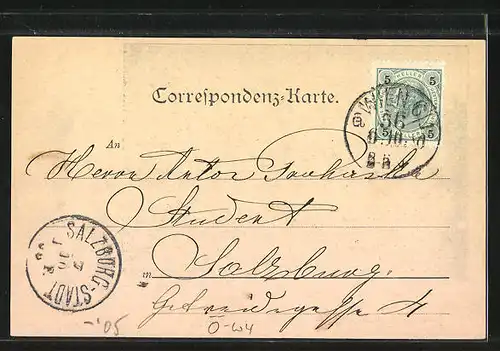 5 HELLER 5
Correspondenz-Karte.
WIEN
An
Herrn Anton
Student
in Salzburg.
Getreidegasse 4
SALZBURG-STADT
-'05
Ö-W4